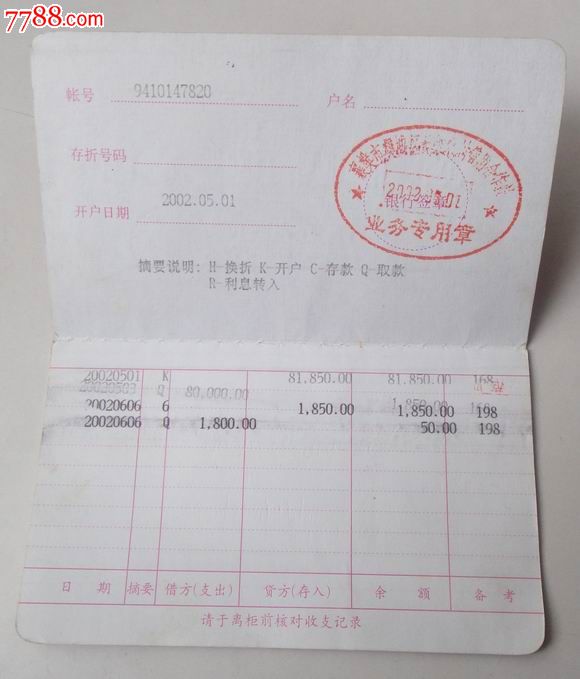 7788.com
帐号 9410147820 户名
存折号码
开户日期 2002.05.01
2002.05.01
银行签章
业务专用章
摘要说明: H-换折 K-开户 C-存款 Q-取款
R-利息转入
20020501 K 81,850.00 81,850.00 168
20020503 Q 80,000.00 1,850.00
20020606 6 1,850.00 1,850.00 198
20020606 Q 1,800.00 50.00 198
日 期 摘要 借方(支出) 贷方(存入) 余 额 备 考
请于离柜前核对收支记录